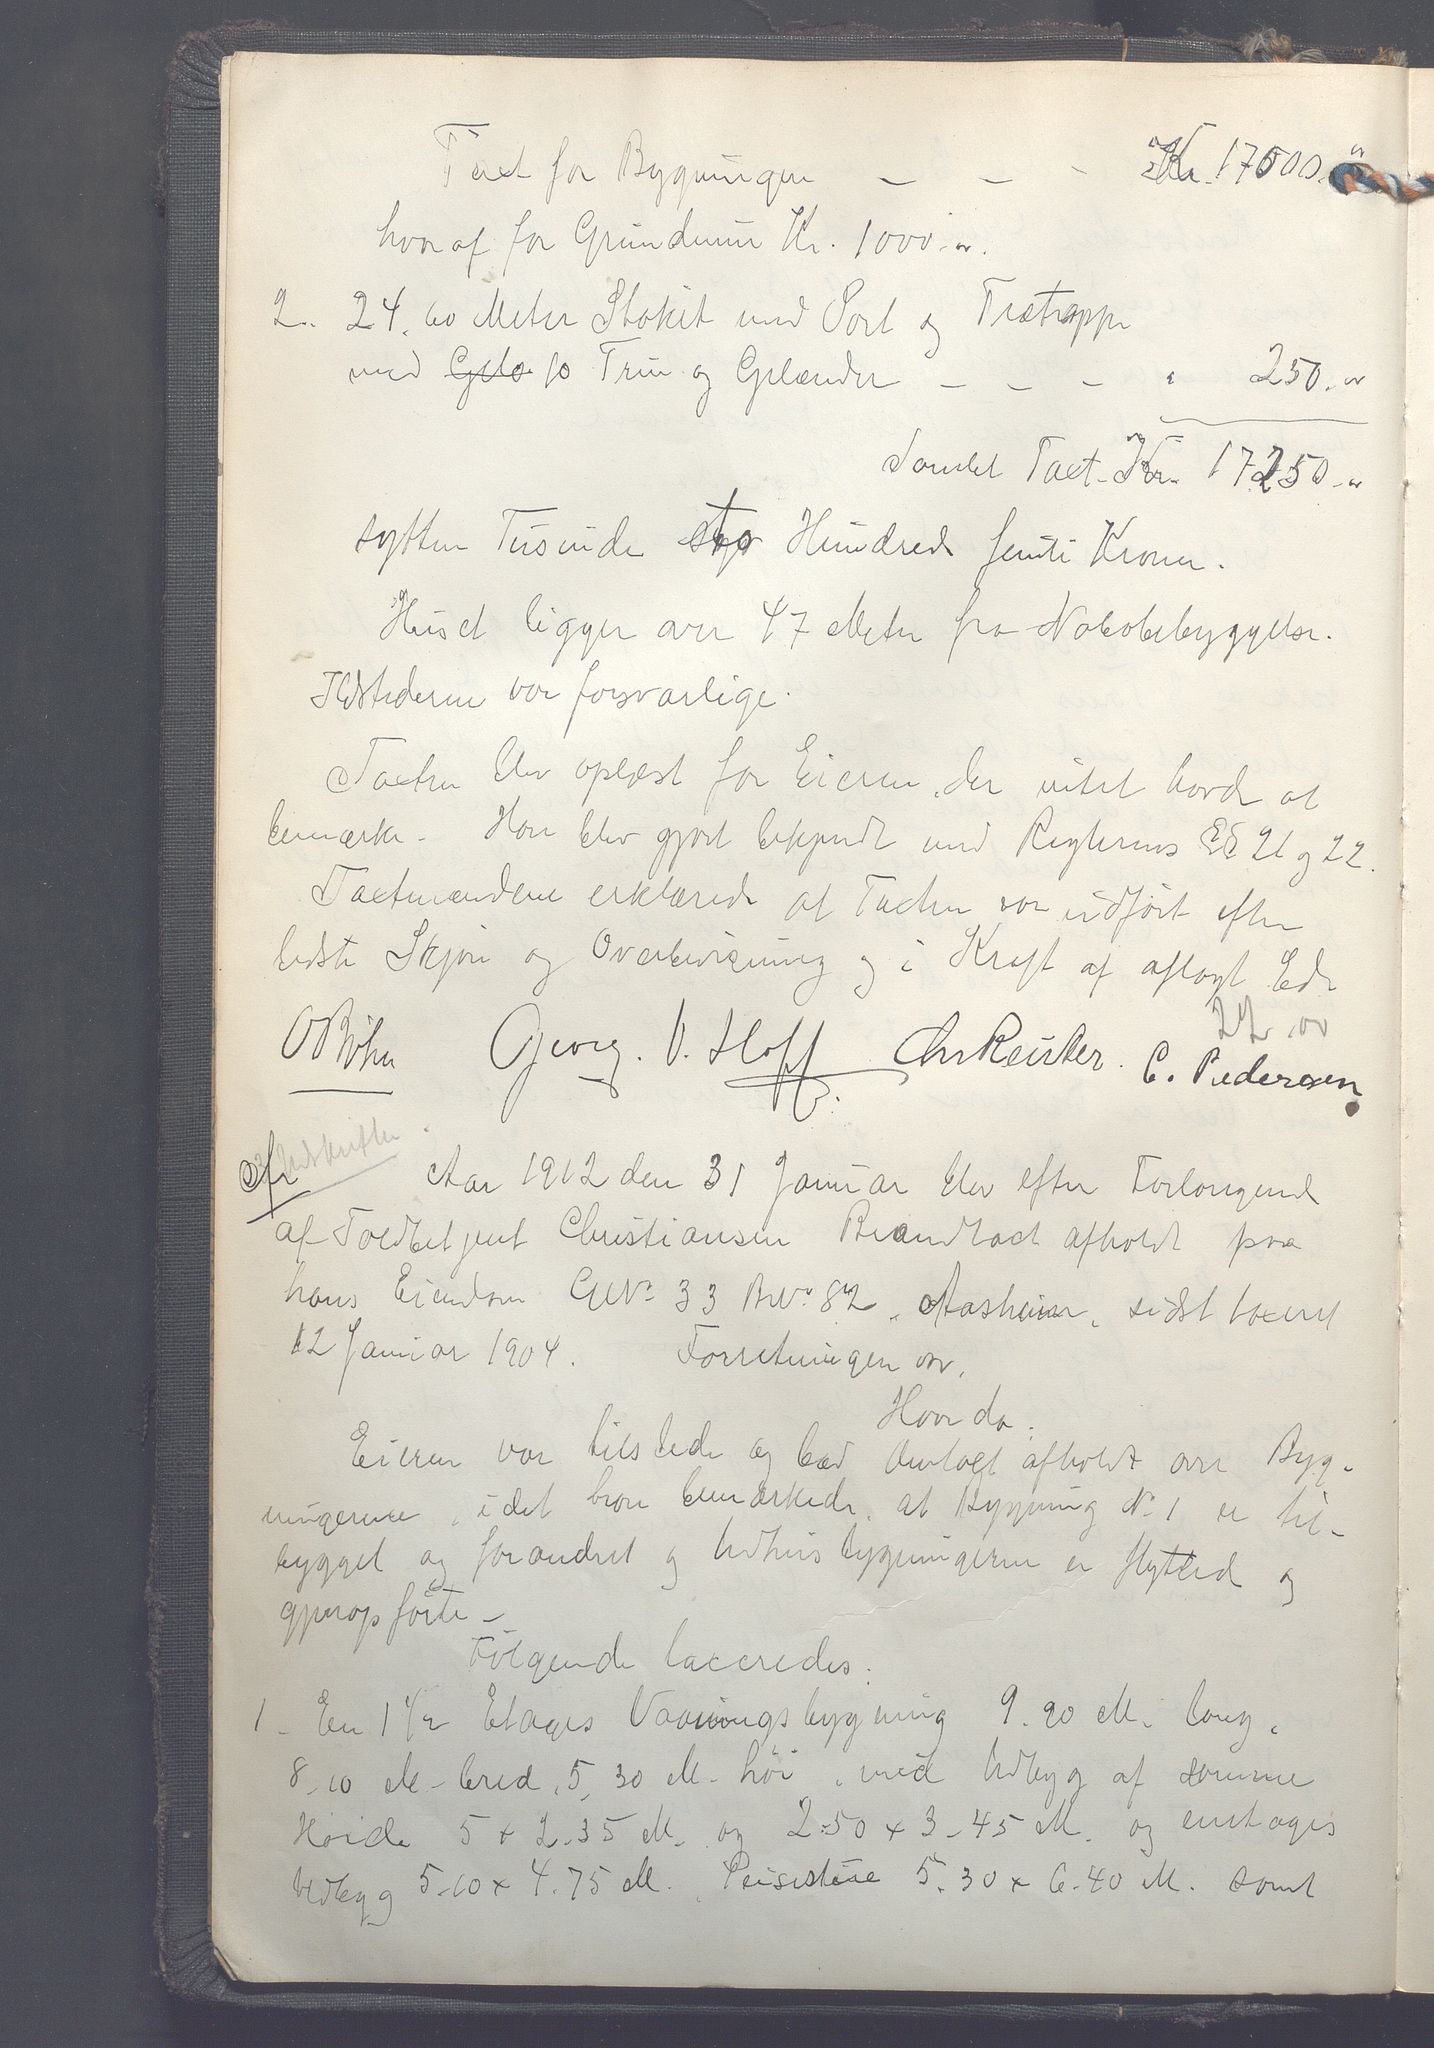 Taxt for Bygningen — — - Kr. 17000.
hvoraf for Grundmur Kr. 1000.
2. 24.00 Meter Stakit med Port og Trætrappe
med 10 Trin og Gelænder — — — " 250.
Samlet Taxt Kr. 17250.
sytten Tusinde to Hundrede femti Kroner.
Huset ligger over 47 Meter fra Nabobebyggelse.
Ildstederne var forsvarlige.
Taxten blev oplæst for Eieren, der intet havde at
bemærke. Han blev gjort bekjendt med Reglernes §§ 21 og 22.
Taxtmændene erklærede at Taxten var udført efter
bedste Skjøn og Overbevisning og i Kraft af aflagt Ed.
O Bøhn Georg. V. Hoff Chr Reuter. C. Pedersen
Afr Udskriften
Aar 1912 den 31 Januar blev efter Forlangende
af Toldbetjent Christiansen Brandtaxt afholdt paa
hans Eiendom GNo 33 BNo 82, Aasheim, sidst taxeret
12 Januar 1904. Forretningen osv.
Hvorda.
Eieren var tilstede og bad Omtaxt afholdt over Byg-
ningerne, idet han bemærkede, at Bygning No 1 er til-
bygget og forandret og Udhusbygningerne er flyttede og
gjenopførte –
Følgende taxeredes.
1. En 1 1/2 Etages Vaaningsbygning 9.90 M. lang,
8.10 M. bred, 5.30 M. høi, med Udbyg af samme
Høide 5 x 2.35 M. og 2.50 x 3.45 M. og enetages
Udbyg 5.10 x 4.75 M. Peisestue 5.30 x 6.40 M. samt